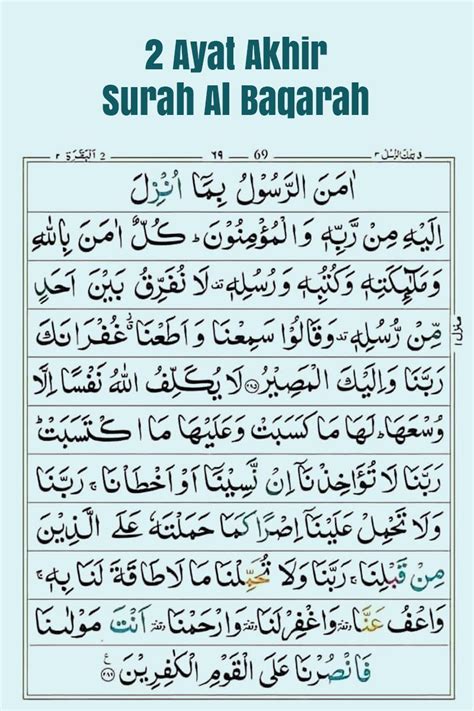 2 Ayat Akhir
Surah Al Baqarah
تِلْكَ الرُّسُلُ ٣ 69 ٦٩ 2 اَلْبَقَرَة ٢
اٰمَنَ الرَّسُوْلُ بِمَاۤ اُنْزِلَ
اِلَيْهِ مِنْ رَّبِّهٖ وَالْمُؤْمِنُوْنَ ؕ كُلٌّ اٰمَنَ بِاللّٰهِ
وَمَلٰٓئِكَتِهٖ وَكُتُبِهٖ وَرُسُلِهٖ ۟ لَا نُفَرِّقُ بَيْنَ اَحَدٍ
مِّنْ رُّسُلِهٖ ۟ وَقَالُوْا سَمِعْنَا وَاَطَعْنَا ۫ غُفْرَانَكَ
رَبَّنَا وَاِلَيْكَ الْمَصِيْرُ ﴿۲۸۵﴾ لَا يُكَلِّفُ اللّٰهُ نَفْسًا اِلَّا
وُسْعَهَا ؕ لَهَا مَا كَسَبَتْ وَعَلَيْهَا مَا اكْتَسَبَتْ ؕ
رَبَّنَا لَا تُؤَاخِذْنَاۤ اِنْ نَّسِيْنَاۤ اَوْ اَخْطَاْنَا ۚ رَبَّنَا
وَلَا تَحْمِلْ عَلَيْنَاۤ اِصْرًا كَمَا حَمَلْتَهٗ عَلَى الَّذِيْنَ
مِنْ قَبْلِنَا ۚ رَبَّنَا وَلَا تُحَمِّلْنَا مَا لَا طَاقَةَ لَنَا بِهٖ ۚ
وَاعْفُ عَنَّا وقفة وَاغْفِرْ لَنَا وقفة وَارْحَمْنَا وقفة اَنْتَ مَوْلٰىنَا
فَانْصُرْنَا عَلَى الْقَوْمِ الْكٰفِرِيْنَ ﴿۲۸۶﴾ ع
منزل ١